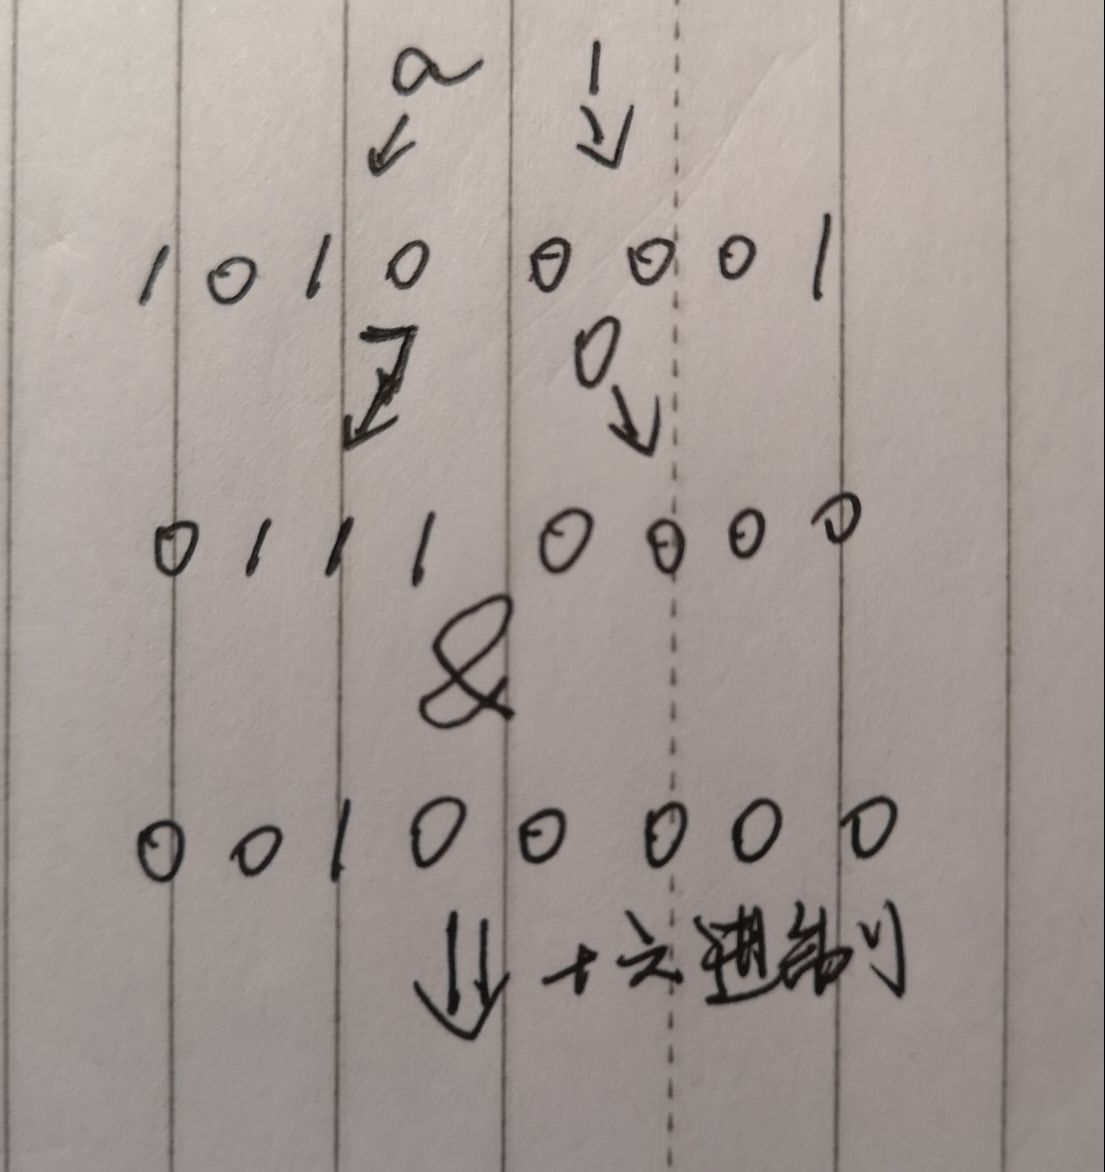 a 1
↙ ↘
1 0 1 0 0 0 0 1
7 0
↙ ↘
0 1 1 1 0 0 0 0
&
0 0 1 0 0 0 0 0
⇓ 十六进制